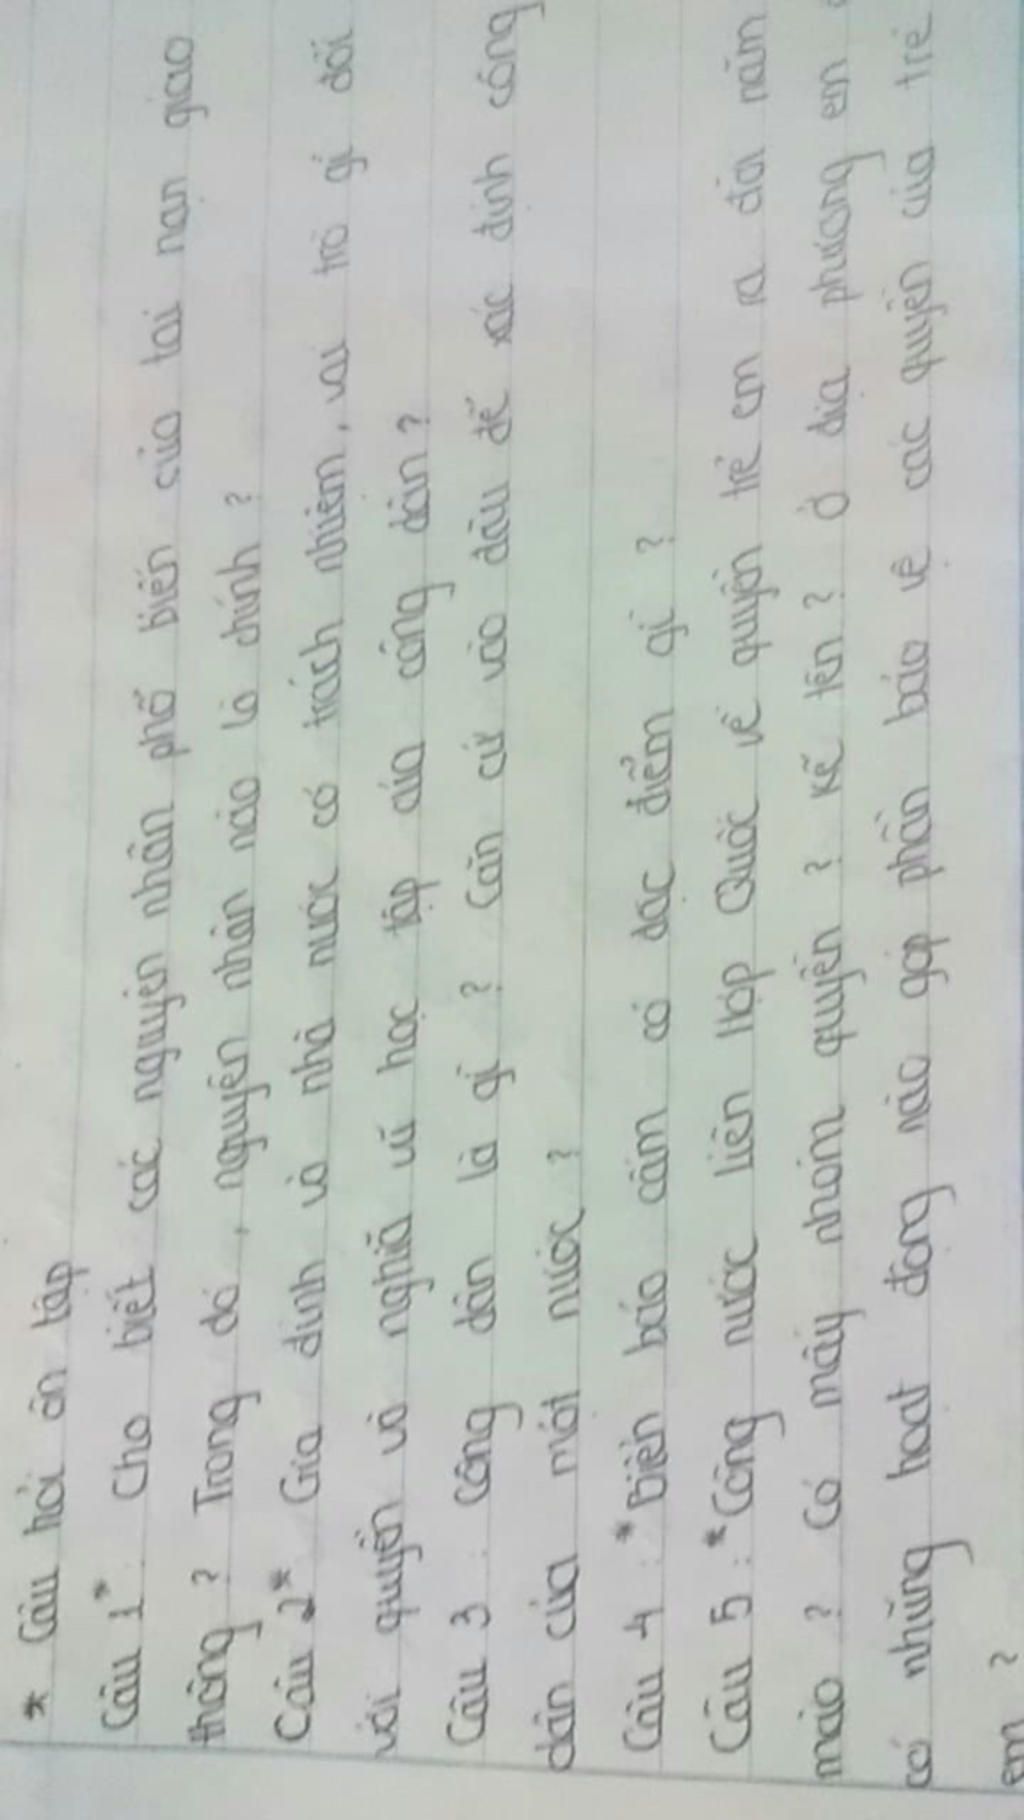 * Câu hỏi ôn tập
Câu 1*: Cho biết các nguyên nhân phổ biến của tai nạn giao
thông ? Trong đó, nguyên nhân nào là chính ?
Câu 2* Gia đình và nhà nước có trách nhiệm, vai trò gì đối
với quyền và nghĩa vụ học tập của công dân ?
Câu 3 : Công dân là gì ? Căn cứ vào đâu để xác định công
dân của một nước ?
Câu 4 :* Biển báo cấm có đặc điểm gì ?
Câu 5 :* Công nước Liên Hợp Quốc về quyền trẻ em ra đời năm
nào ? Có mấy nhóm quyền ? Kể tên ? Ở địa phương em
có những hoạt động nào góp phần bảo vệ các quyền của trẻ
em ?